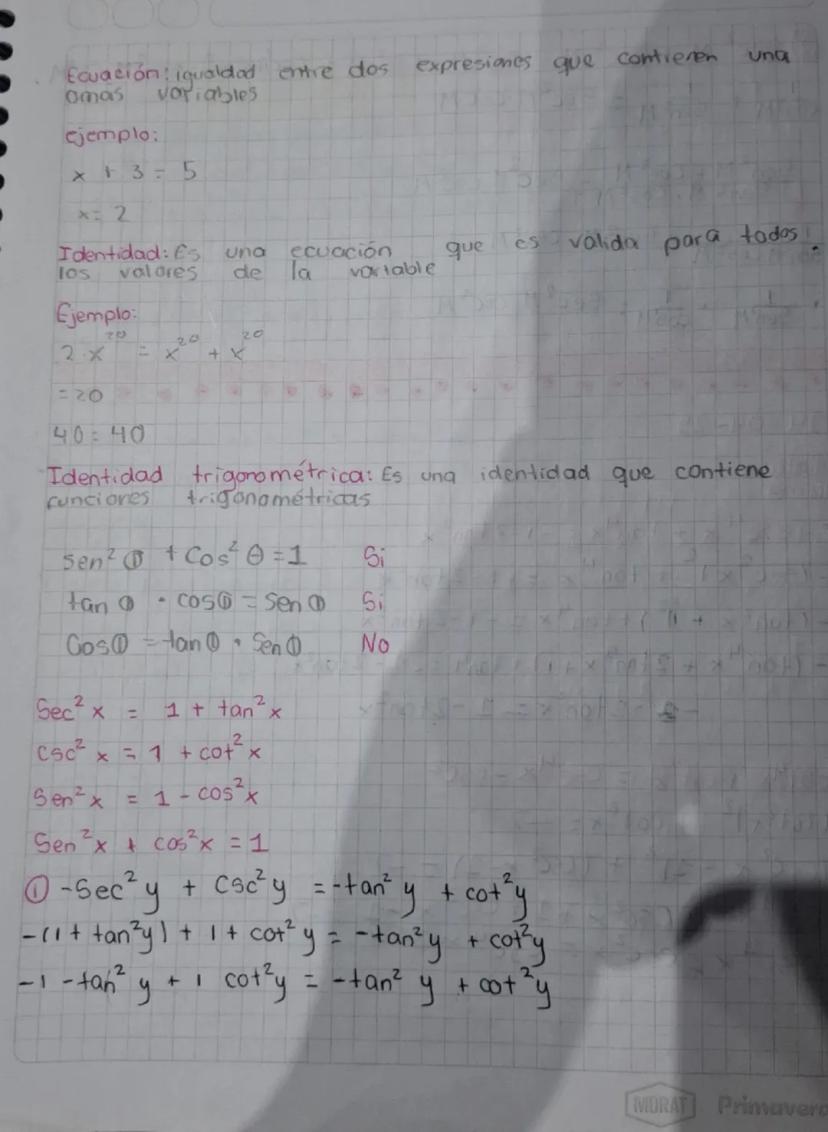 Ecuación: igualdad entre dos expresiones que contienen una
omas variables
ejemplo:
x + 3 = 5
x = 2
Identidad: Es una ecuación que es valida para todos
los valores de la variable
Ejemplo:
2·x²⁰ = x²⁰ + x²⁰
= 20
40 = 40
Identidad trigonométrica: Es una identidad que contiene
funciones trigonométricas
sen² θ + Cos² θ = 1 Si
tan θ · cosθ = sen θ Si
Cosθ = tanθ · Senθ No
Sec²x = 1 + tan²x
csc² x = 1 + cot²x
Sen²x = 1 - cos²x
Sen²x + cos²x = 1
① -Sec²y + Csc²y = -tan² y + cot²y
-(1 + tan²y) + 1 + cot² y = -tan²y + cot²y
-1 -tan² y + 1 cot²y = -tan² y + cot²y
MORAT Primavera